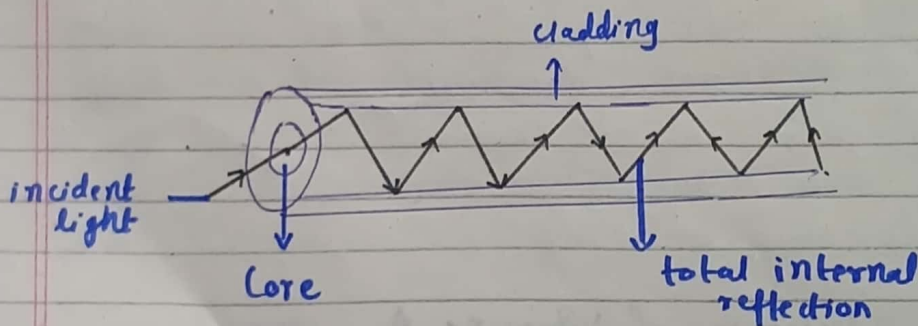 cladding
incident
light
Core
total internal
reflection